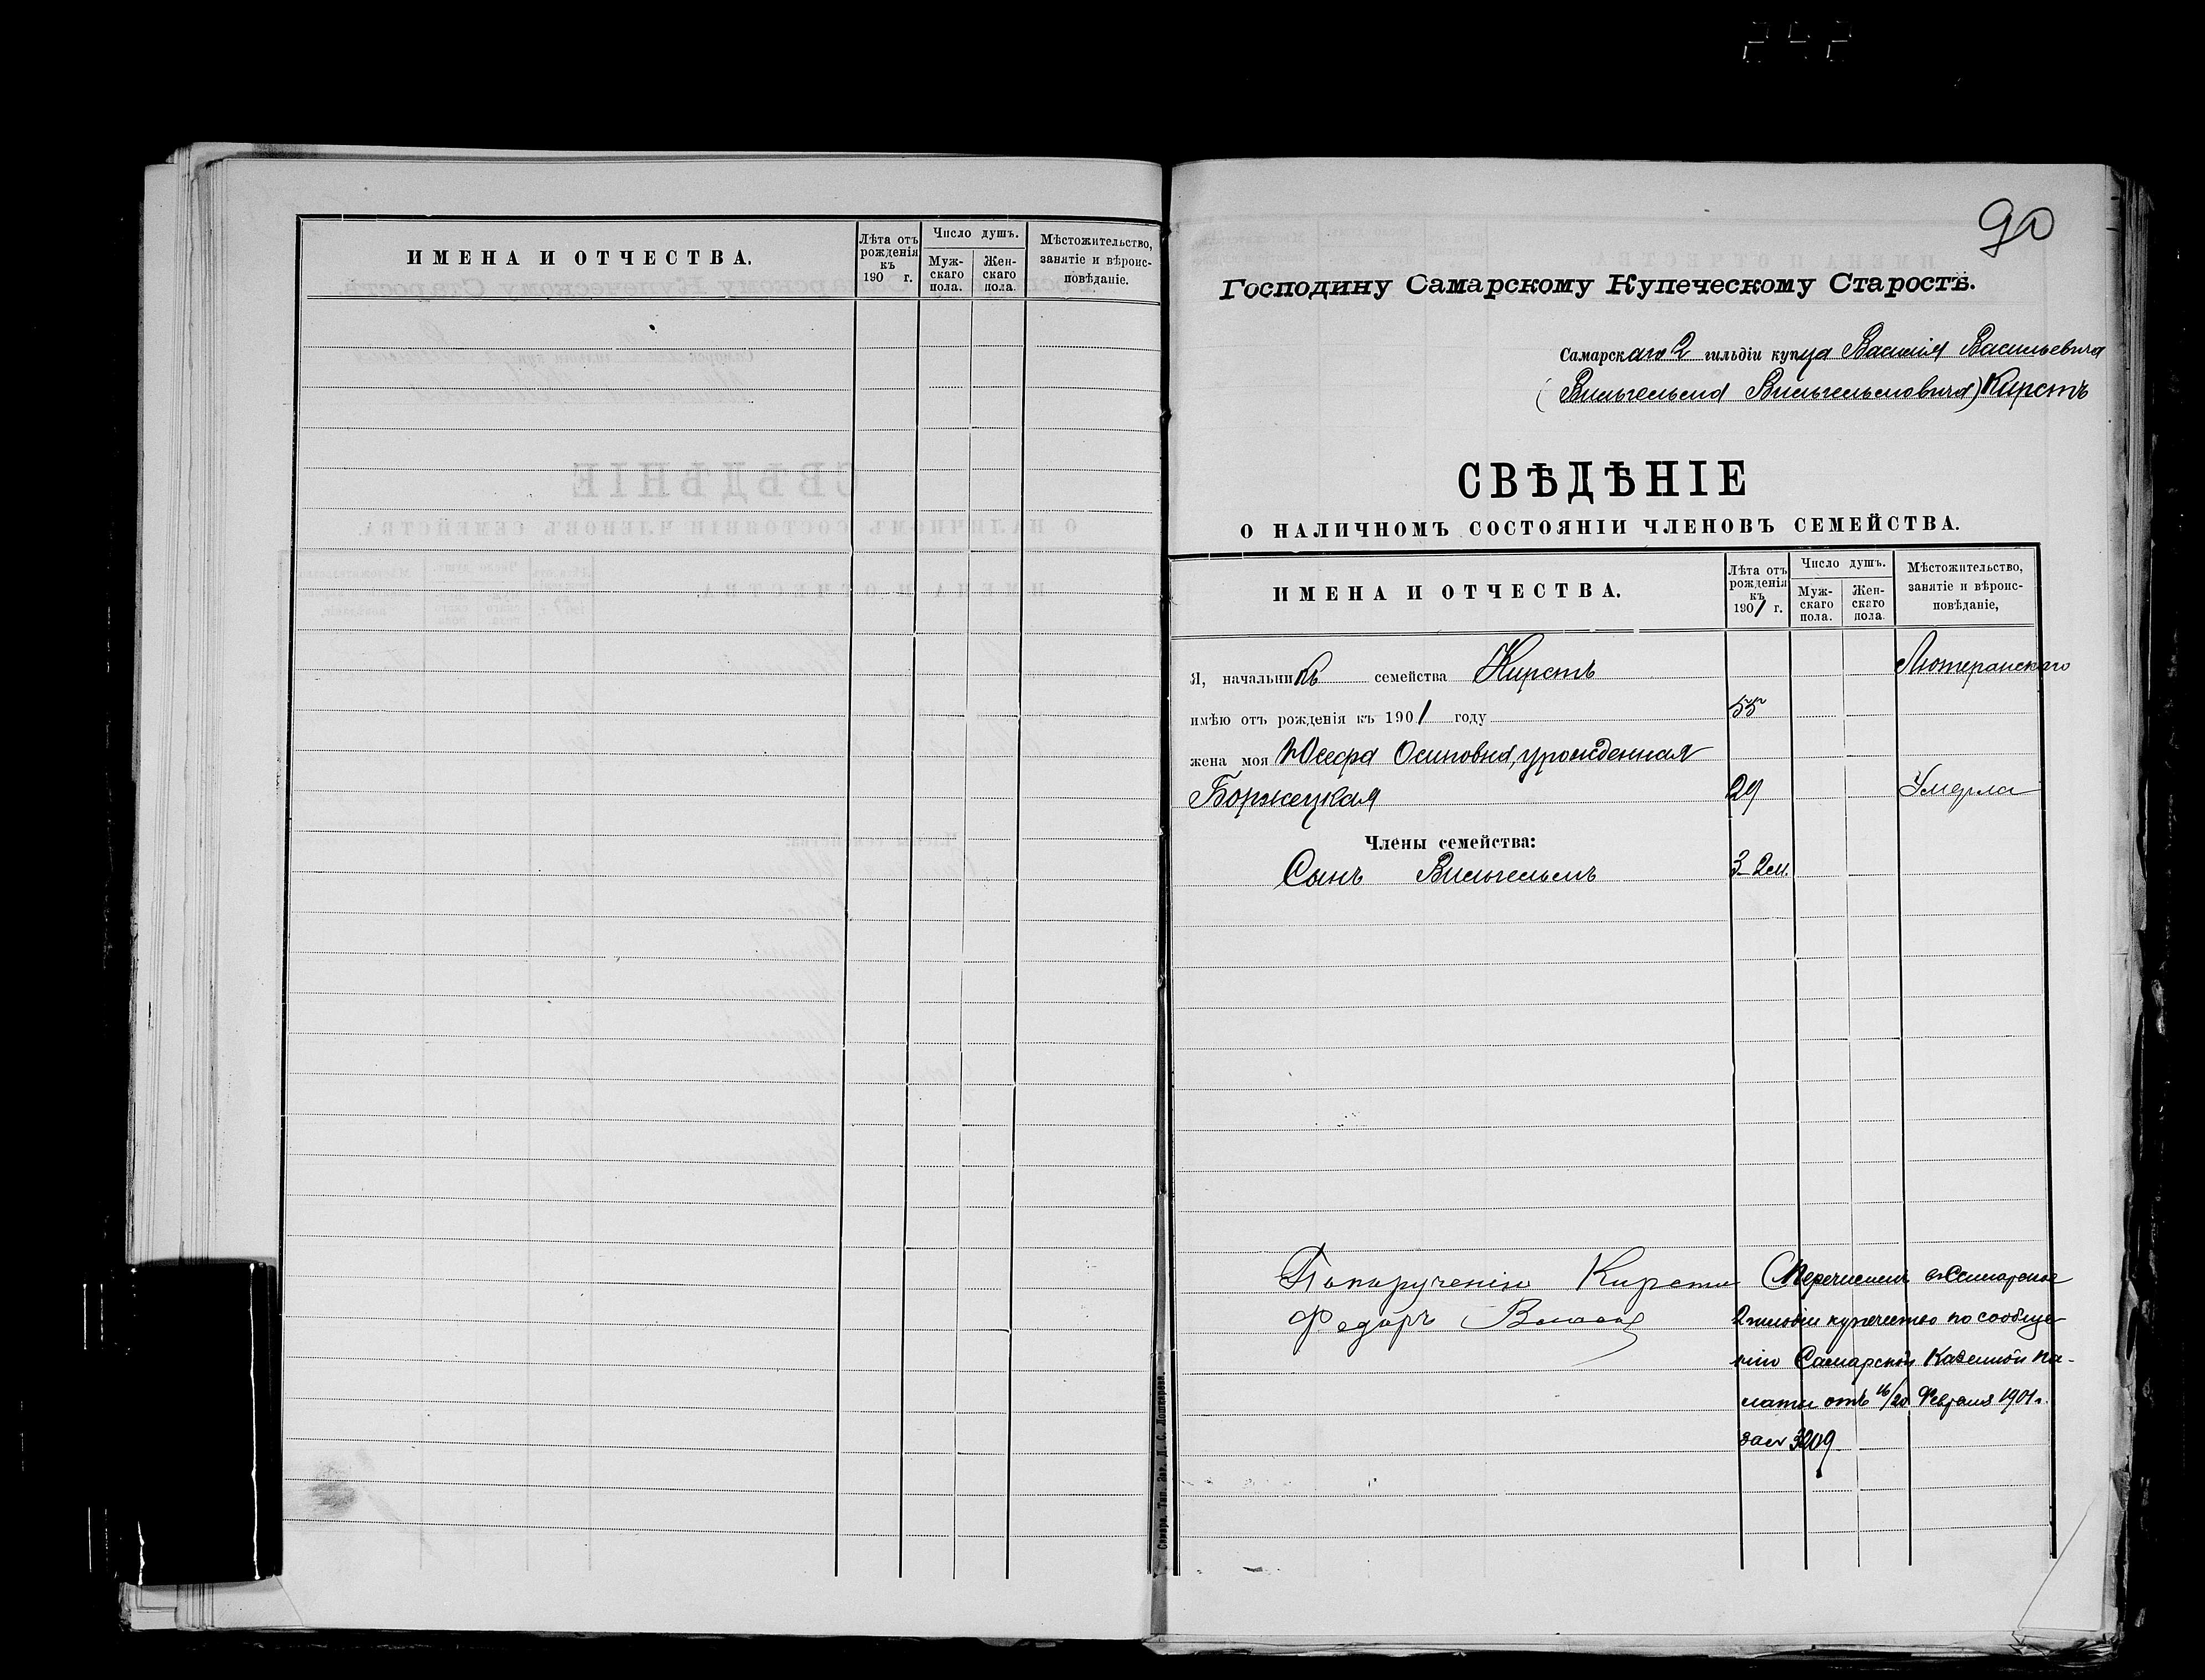 242
ИМЕНА И ОТЧЕСТВА.
Лѣта отъ рожденія къ 190 г.
Число душъ.
Муж-скаго пола.
Жен-скаго пола.
Мѣстожительство, занятіе и вѣроис-повѣданіе.
Самара. Тип. Зав. Д. С. Лошкарева.
90
Господину Самарскому Купеческому Старостѣ.
Самарскаго 2 гильдіи купца Василія Васильевича
(Вильгельма Вильгельмовича) Кирстъ
СВѢДѢНІЕ
О НАЛИЧНОМЪ СОСТОЯНІИ ЧЛЕНОВЪ СЕМЕЙСТВА.
ИМЕНА И ОТЧЕСТВА.
Лѣта отъ рожденія къ 1901 г.
Число душъ.
Муж-скаго пола.
Жен-скаго пола.
Мѣстожительство, занятіе и вѣроис-повѣданіе,
Я, начальникъ семейства Кирстъ Лютеранскаго
имѣю отъ рожденія къ 1901 году 55
жена моя Юсефа Осиповна, урожденная
Боржецкая 29 Умерла
Члены семейства:
Сынъ Вильгельмъ 3-2 м.
По порученію Кирста
Федоръ
Перечисленъ въ Самарское
2 гильдіи купечество по сообще
нію Самарской Казенной Па-
латы отъ 16/20 Февраля 1901 г.
за № 3209